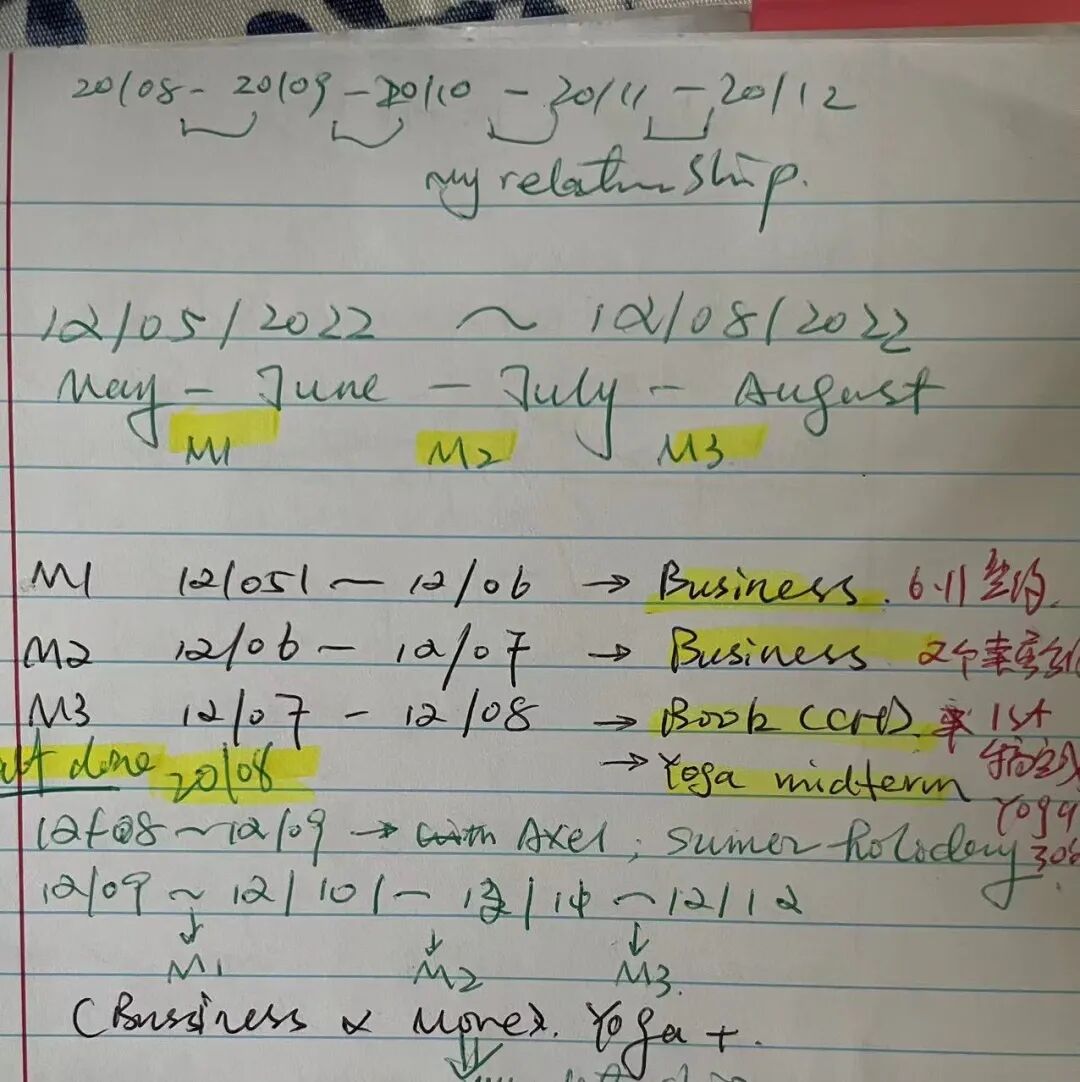 20/08 - 20/09 - 20/10 - 20/11 - 20/12
my relationship.
12/05/2022 ~ 12/08/2022
May - June - July - August
M1 M2 M3
M1 12/051 ~ 12/06 → Business. 6.11
M2 12/06 - 12/07 → Business 2个
M3 12/07 - 12/08 → Book 1st
done 20/08 → Yoga midterm
Yoga
12/08 ~ 12/09 → with Axel, sumer holoday 30
12/09 ~ 12/101 - 12/12
M1 M2 M3.
(Bussiness & Yoga +.